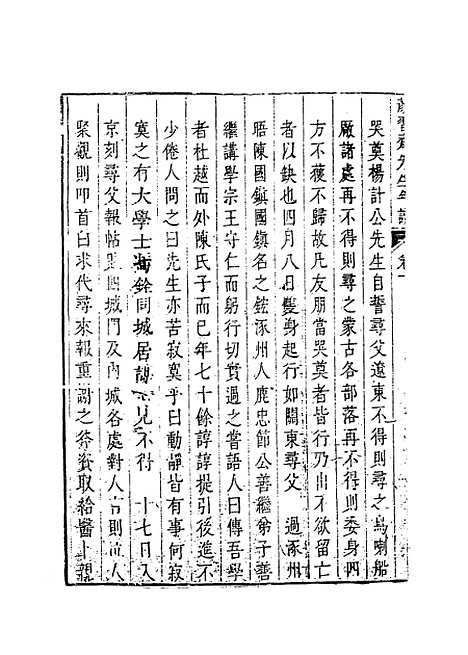 顏習齋先生年譜 卷下
哭奠楊計公先生自誓尋父遼東不得則尋之烏喇船
厰諸處再不得則尋之蒙古各部落再不得則委身四
方不獲不歸故凡友朋當哭奠者皆行乃出不欲留亡
者以缺也四月八日隻身起行如關東尋父 過涿州
晤陳國鎮國鎮名之鋐涿州人鹿忠節公善繼弟子善
繼講學宗王守仁而躬行切實過之嘗語人曰傳吾學
者杜越而外陳氏子而已年七十餘諄諄提引後進不
少倦人問之曰先生亦苦寂寞乎曰動靜皆有事何寂
寞之有大學士馮銓同城居請一見不得 十七日入
京刻尋父報帖四城門及內城各處對人言則泣人
聚觀則叩首白求代尋來報重謝之斧資取給醫卜親